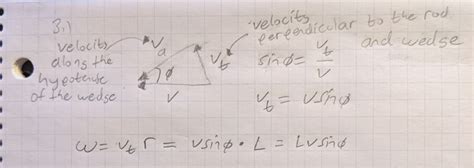 3.)
velocity
along the
hypotenuse
of the wedge
v_a
φ
v
v_t
velocity
perpendicular to the rod
and wedge
sinφ = v_t / v
v_t = v sinφ
ω = v_t r = v sinφ · L = L v sinφ